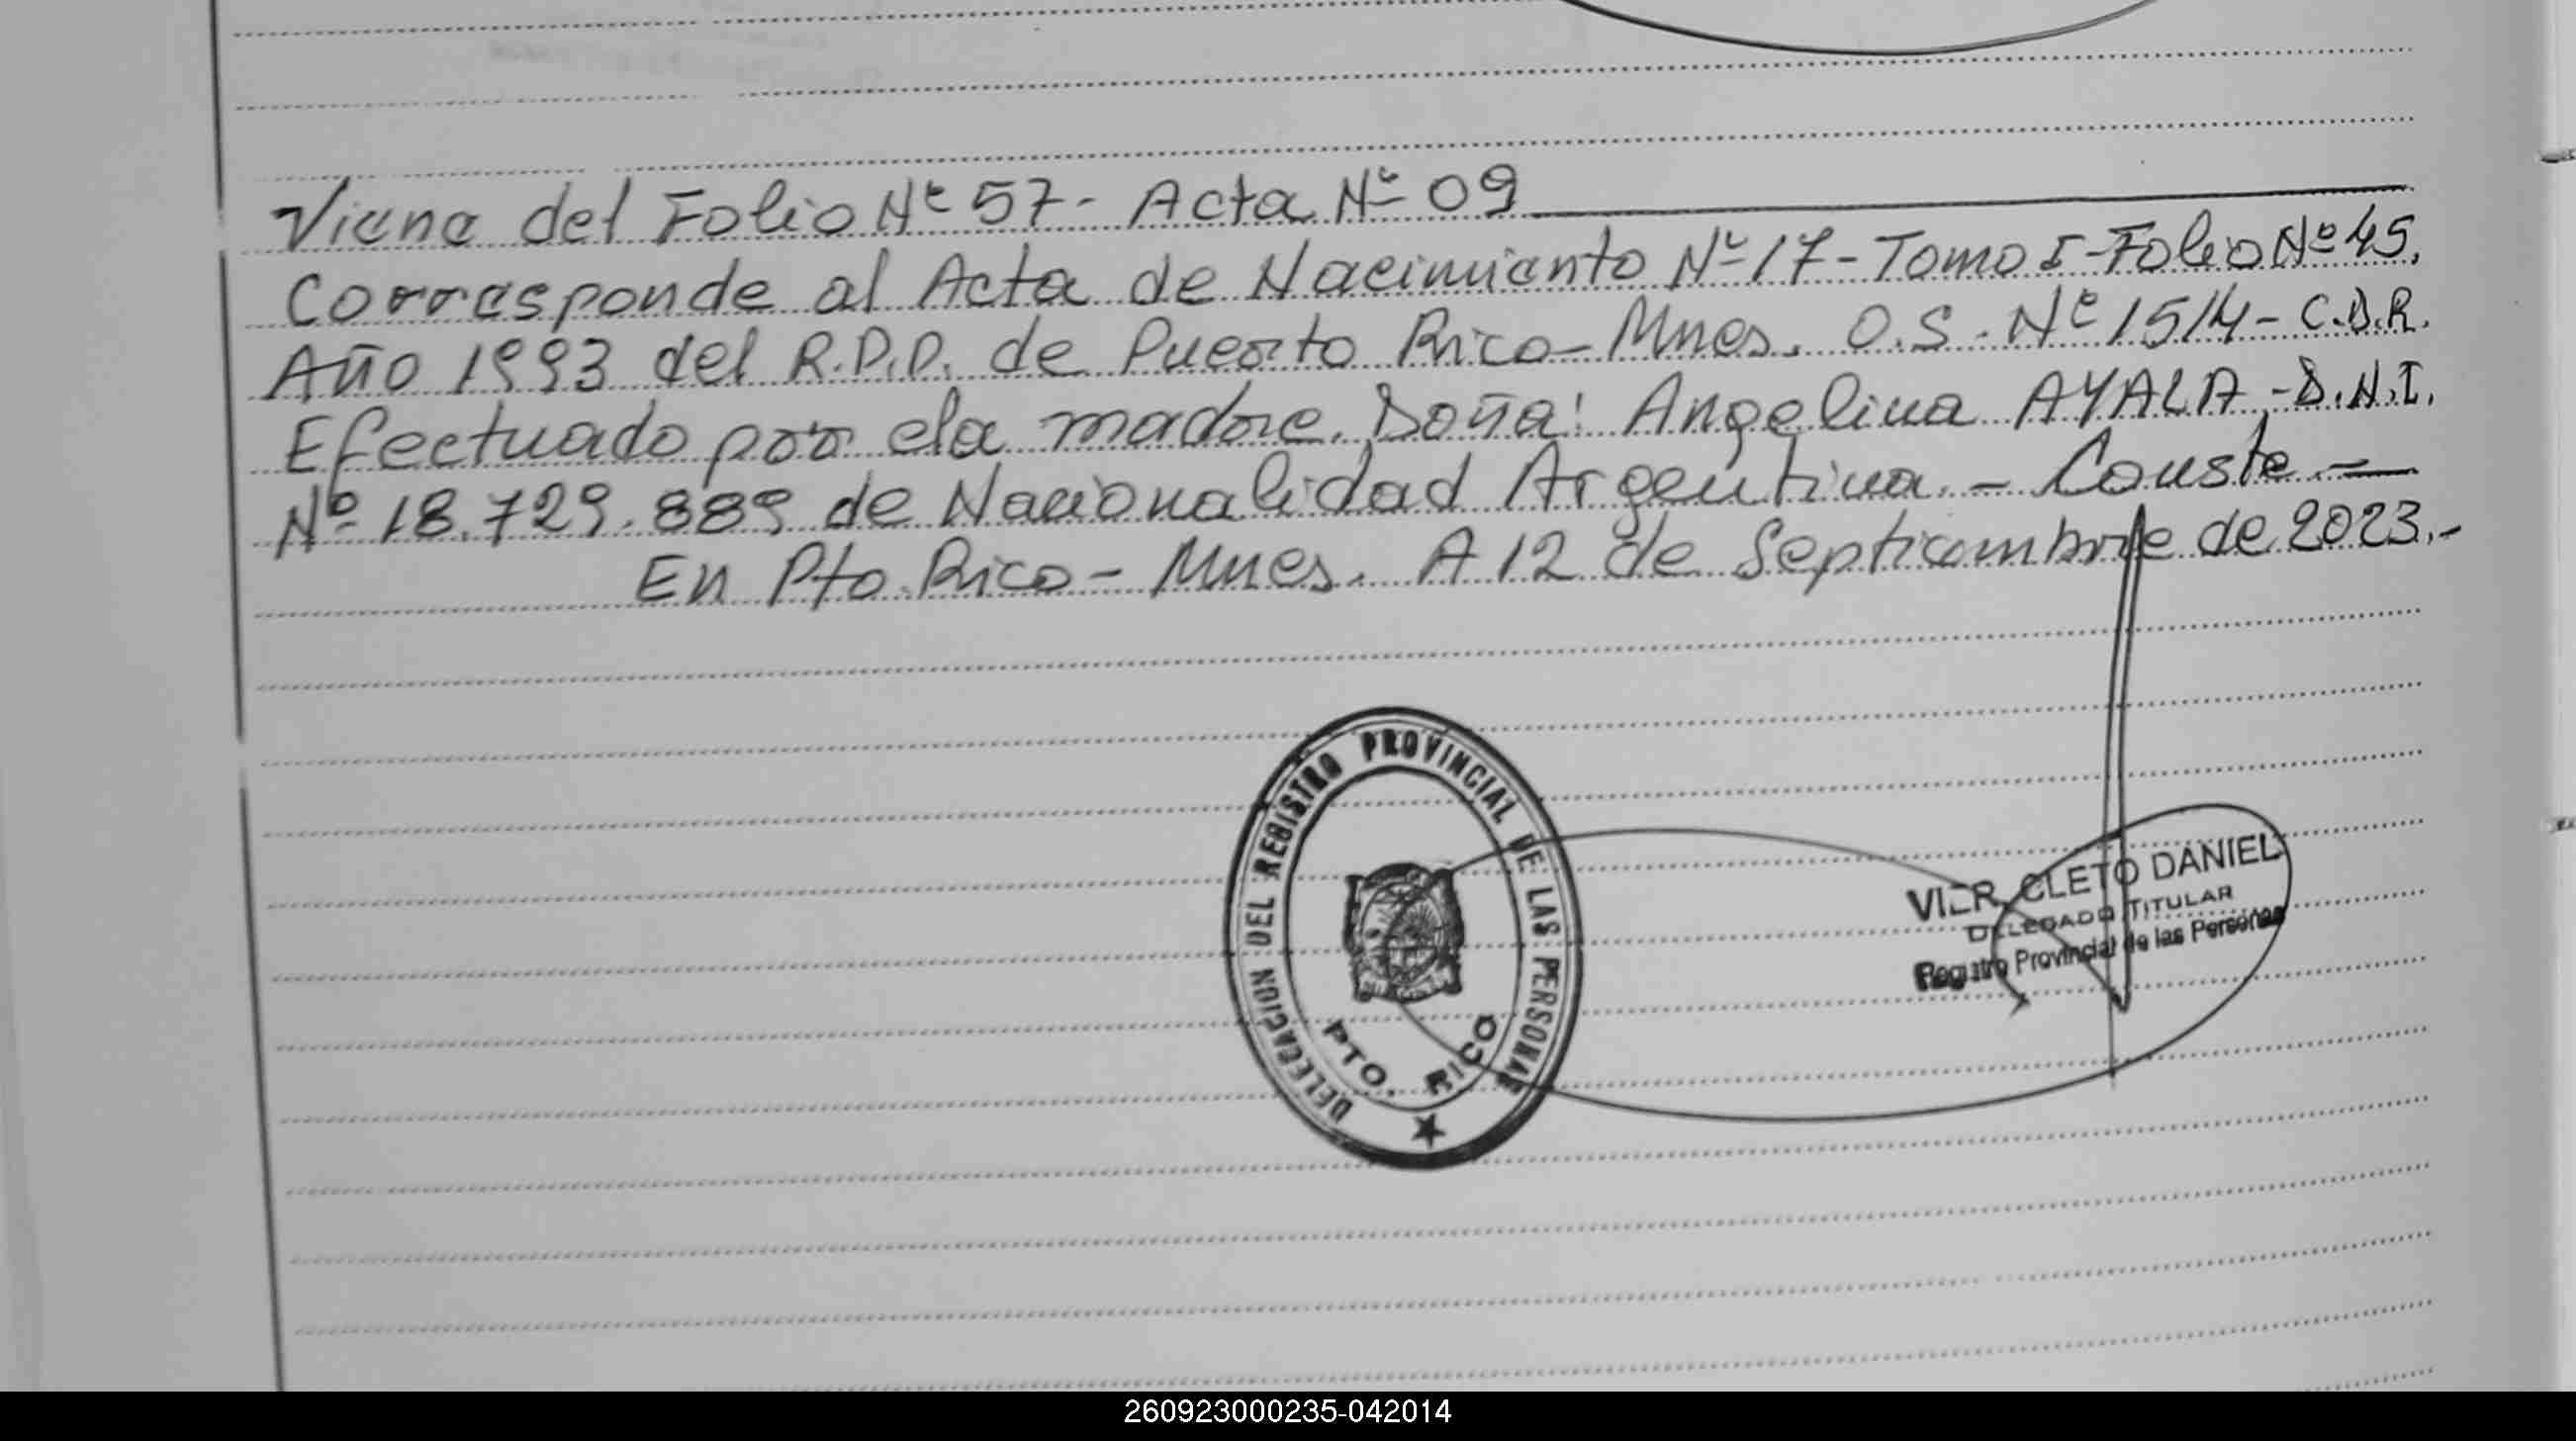 Viene del Folio Nº 57- Acta Nº 09
Corresponde al Acta de Nacimiento Nº 17-Tomo I-Folio Nº 45.
Año 1993 del R.P.P. de Puerto Rico-Mnes. O.S. Nº 1514- C.D.R.
Efectuado por ela madre. Doña: Angelina AYALA-D.N.I.
Nº 18.729.889 de Nacionalidad Argentina.- Conste.-
En Pto. Rico- Mnes. A 12 de Septiembre de 2023.-
DELEGACION DEL REGISTRO PROVINCIAL DE LAS PERSONAS
PTO. RICO
VIER, CLETO DANIEL
DELEGADO TITULAR
Registro Provincial de las Personas
260923000235-042014